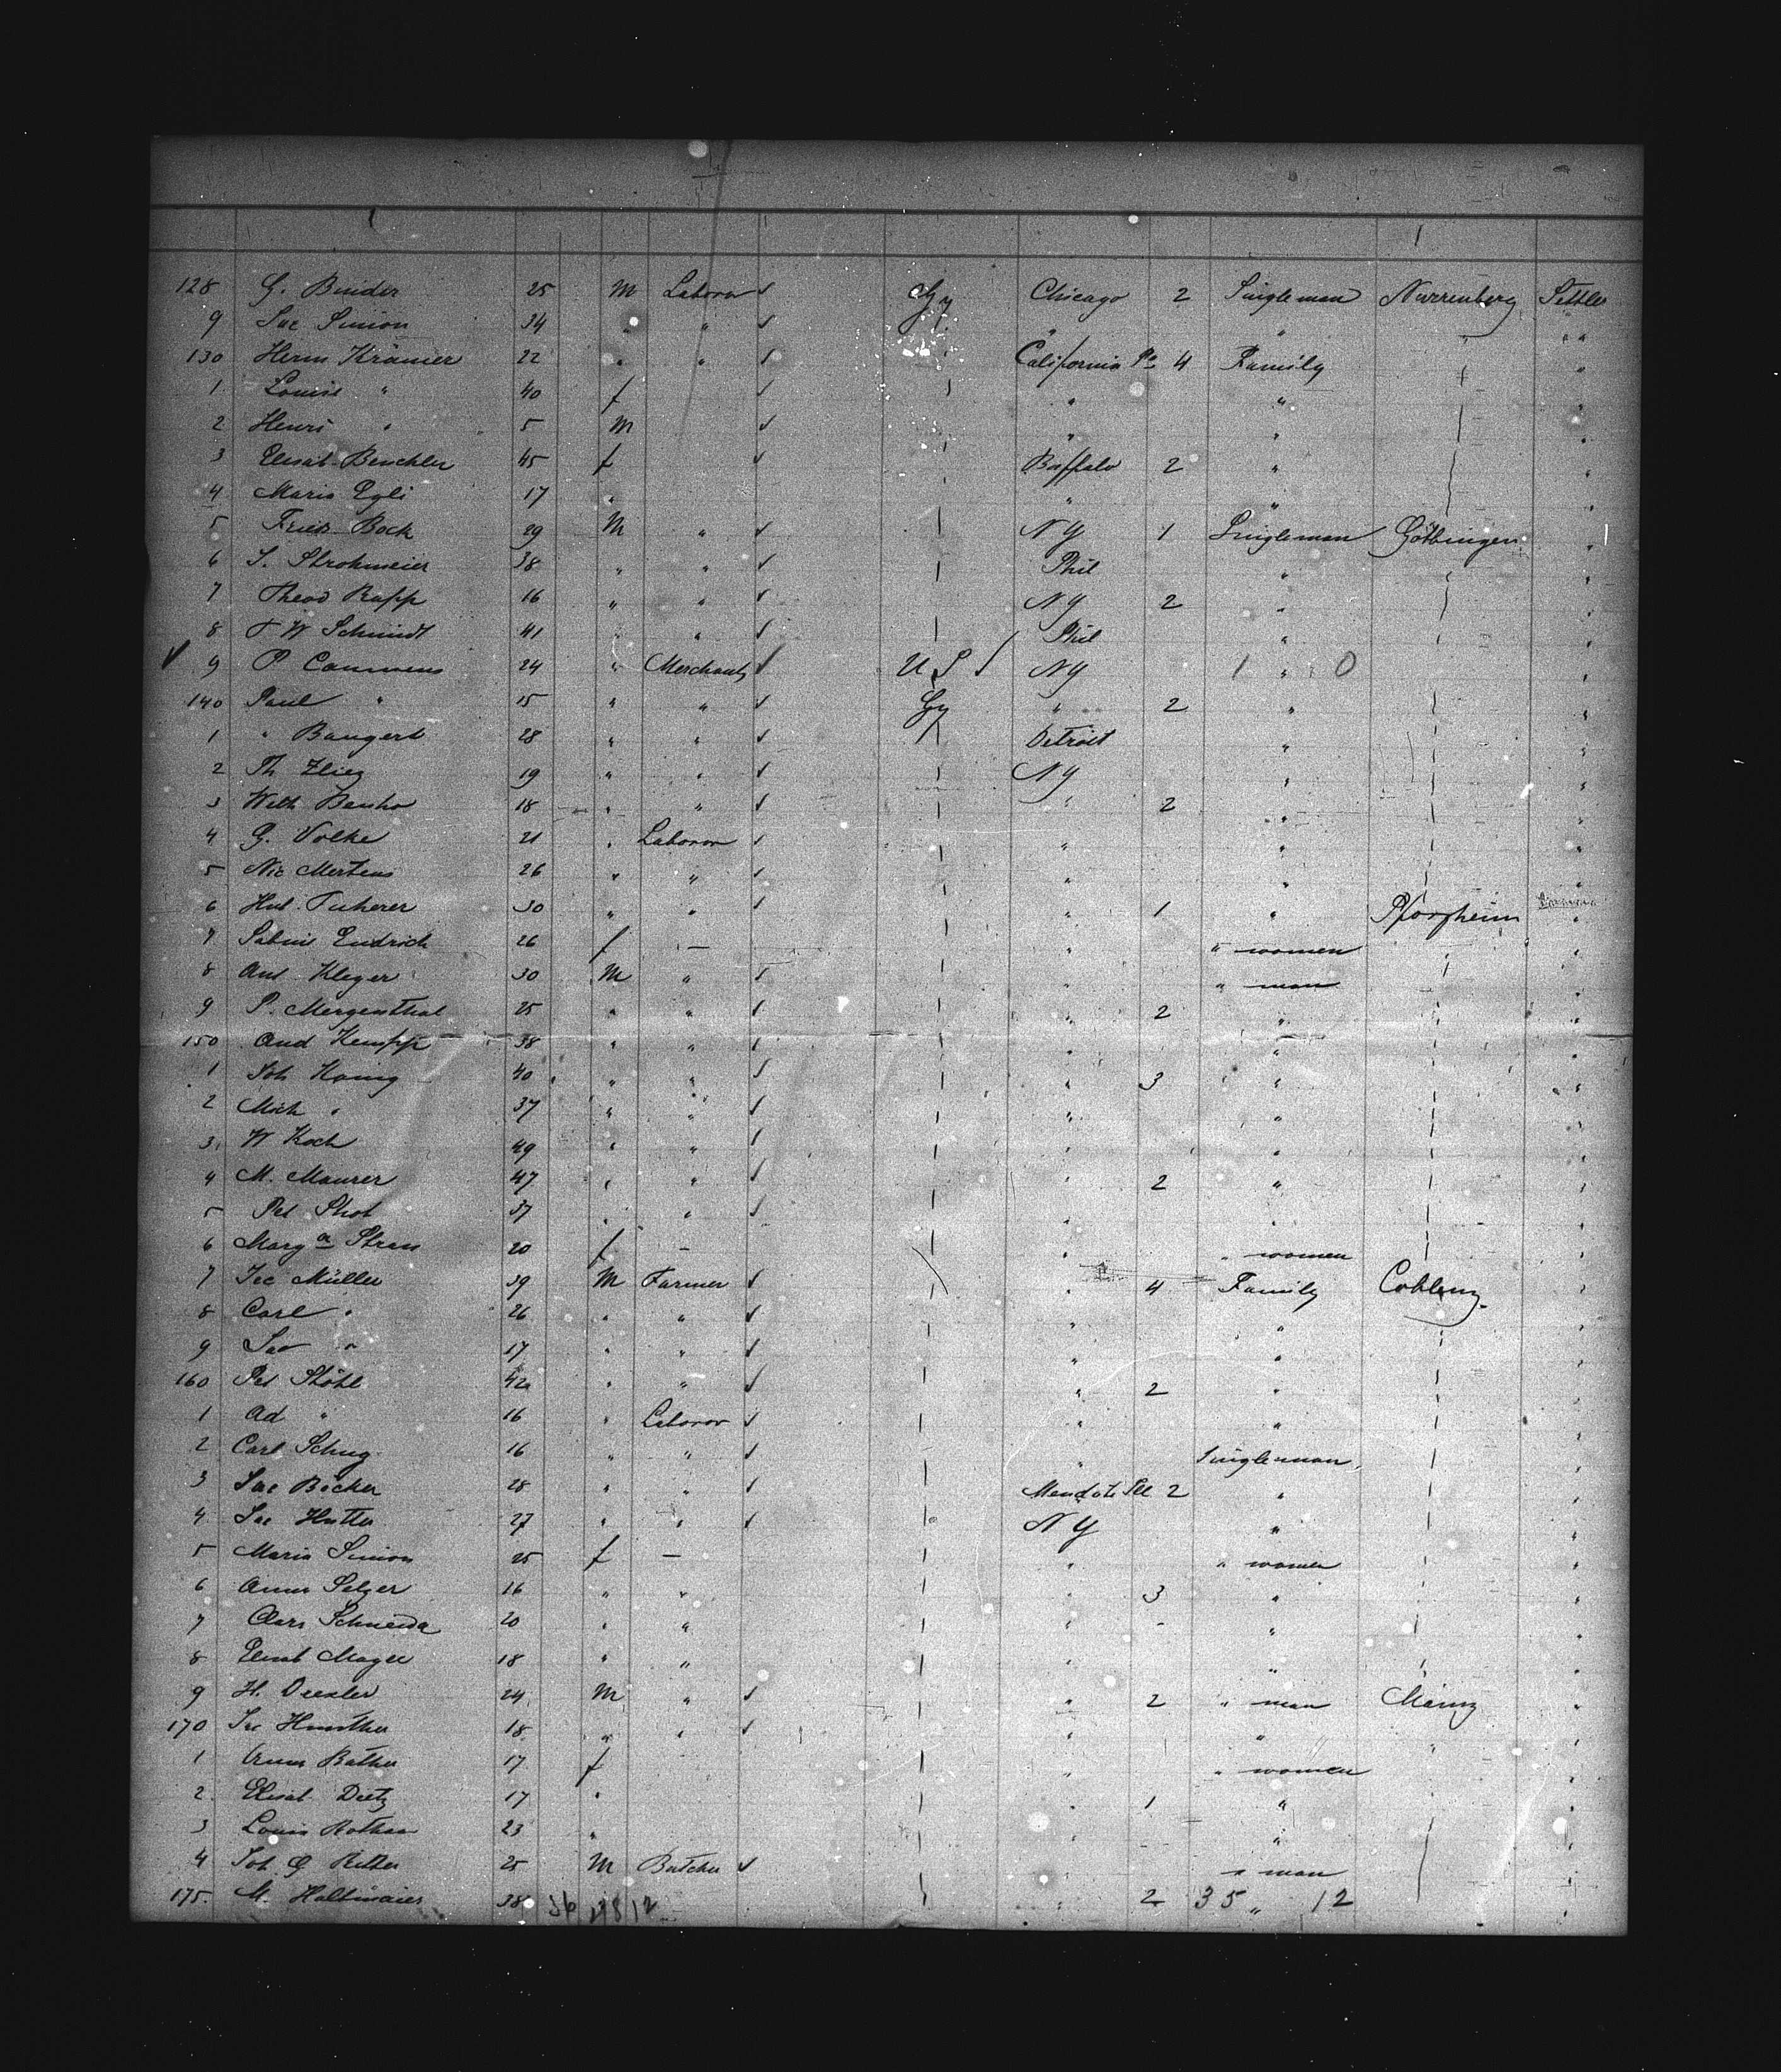 128 G. Binder 25 M Laboror Gy Chicago 2 Single man Nurrenberg Settler
9 Jac Simon 34 " " " " " "
130 Herm Krämer 22 " " California Pa 4 Family "
1 Louise " 40 f " " "
2 Henri " 5 M " " "
3 Elisab. Beuchler 45 f Buffalo 2 " "
4 Maria Egli 17 " " " "
5 Friedr Bock 29 M " N Y 1 Single man Göttingen "
6 J. Strohmeier 38 " " Phil " "
7 Theod Rapp 16 " " N Y 2 " "
8 F W Schmidt 41 " " Phil " "
9 P 24 " Merchant U S N Y 1 " 0 "
140 Paul " 15 " " Gy " 2 " "
1 " Bangert 28 " " Detroit " "
2 Th 19 " " N Y " "
3 Wilh 18 " " " 2 " "
4 G. Volke 21 " Laboror " " "
5 Nic Mertens 26 " " " " "
6 30 " " " 1 " Pforzheim "
7 Sabine Endrich 26 f — " " women "
8 Ant. Kleyer 30 M " " " man "
9 P. Mergenthal 25 " " " 2 " "
150 And Kempp 38 " " " " "
1 Joh 40 " " " 3 " "
2 Mich " 37 " " " " "
3 W Koch 49 " " " "
4 M. Maurer 47 " " " 2 " "
5 Pet 37 " " " " "
6 Marga 20 f — " " women "
7 Müller 39 M Farmer " 4 Family Coblenz "
8 Carl " 26 " " " " "
9 " 17 " " " " "
160 Pet Stöhl 42 " " " 2 " "
1 Ad " 16 " Laboror " " "
2 Carl Schug 16 " " " Single man "
3 Jac Böcker 28 " " Mendota Ill 2 " "
4 Jac Hutter 27 " " N Y " "
5 Maria Simon 25 f — " " women "
6 Anna Selzer 16 " " " 3 " "
7 Clara Schneider 20 " " " - " "
8 Elisab 18 " " " " "
9 H. Drexler 24 M " " 2 " man Mainz "
170 Jac 18 " " " " " "
1 Anna 17 f " " women "
2 Elisab. Dietz 17 " " 1 " "
3 Louis 23 " " " "
4 Joh G Ritter 25 M Butcher " man "
175. M. 38 36 12 " 2 35 " 12 "